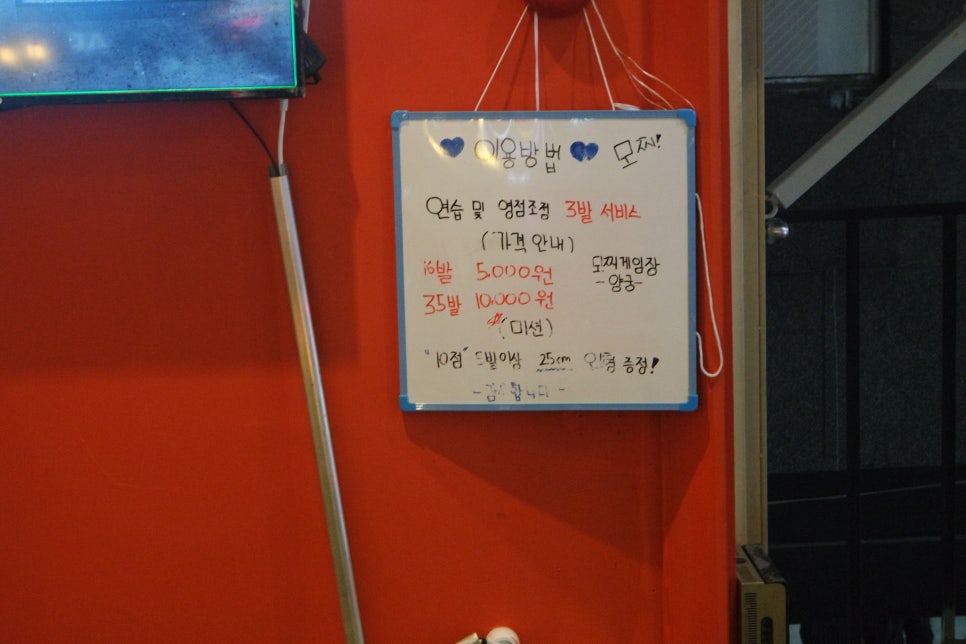 이용방법 모찌!
연습 및 영점조정 3발 서비스
(가격 안내)
16발 5,000원
35발 10,000원
모찌게임장
-양궁-
(미션)
"10점" 5발이상 25cm 인형 증정!
-감사합니다-